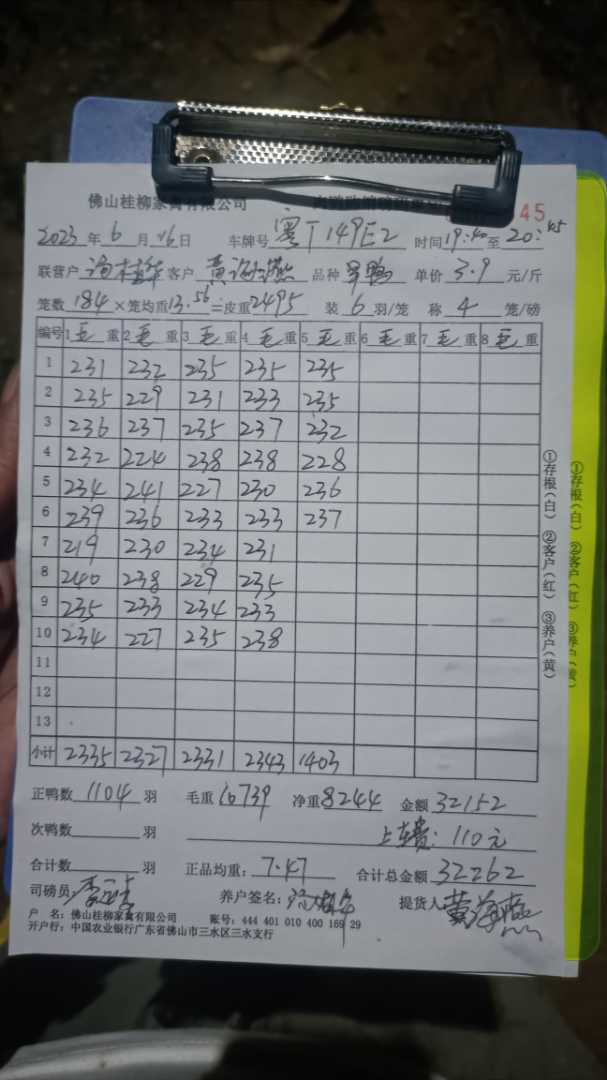 佛山桂柳家禽有限公司
45
2023年6月26日 车牌号 粤T149E2 时间19:40至20:45
联营户 客户 黄海燕 品种 单价3.9元/斤
笼数184×笼均重13.56=皮重2495 装6羽/笼 称4笼/磅
编号 1毛重 2毛重 3毛重 4毛重 5毛重 6毛重 7毛重 8毛重
1 231 232 235 235 235
2 235 229 231 233 235
3 236 237 235 237 232
4 232 224 238 238 228
5 234 241 227 230 236
6 239 236 233 233 237
7 219 230 234 231
8 240 238 229 235
9 235 233 234 233
10 234 227 235 238
11
12
13
小计 2335 2327 2331 2343 1403
正鸭数1104羽 毛重10739 净重8244 金额32152
次鸭数 羽 上车费:110元
合计数 羽 正品均重:7.47 合计总金额32262
司磅员 养户签名: 提货人 黄海燕
户 名:佛山桂柳家禽有限公司 账号:444 401 010 400 169 29
开户行:中国农业银行广东省佛山市三水区三水支行
①存根(白) ②客户(红) ③养户(黄)
①存根(白) ②客户(红) ③养户(黄)